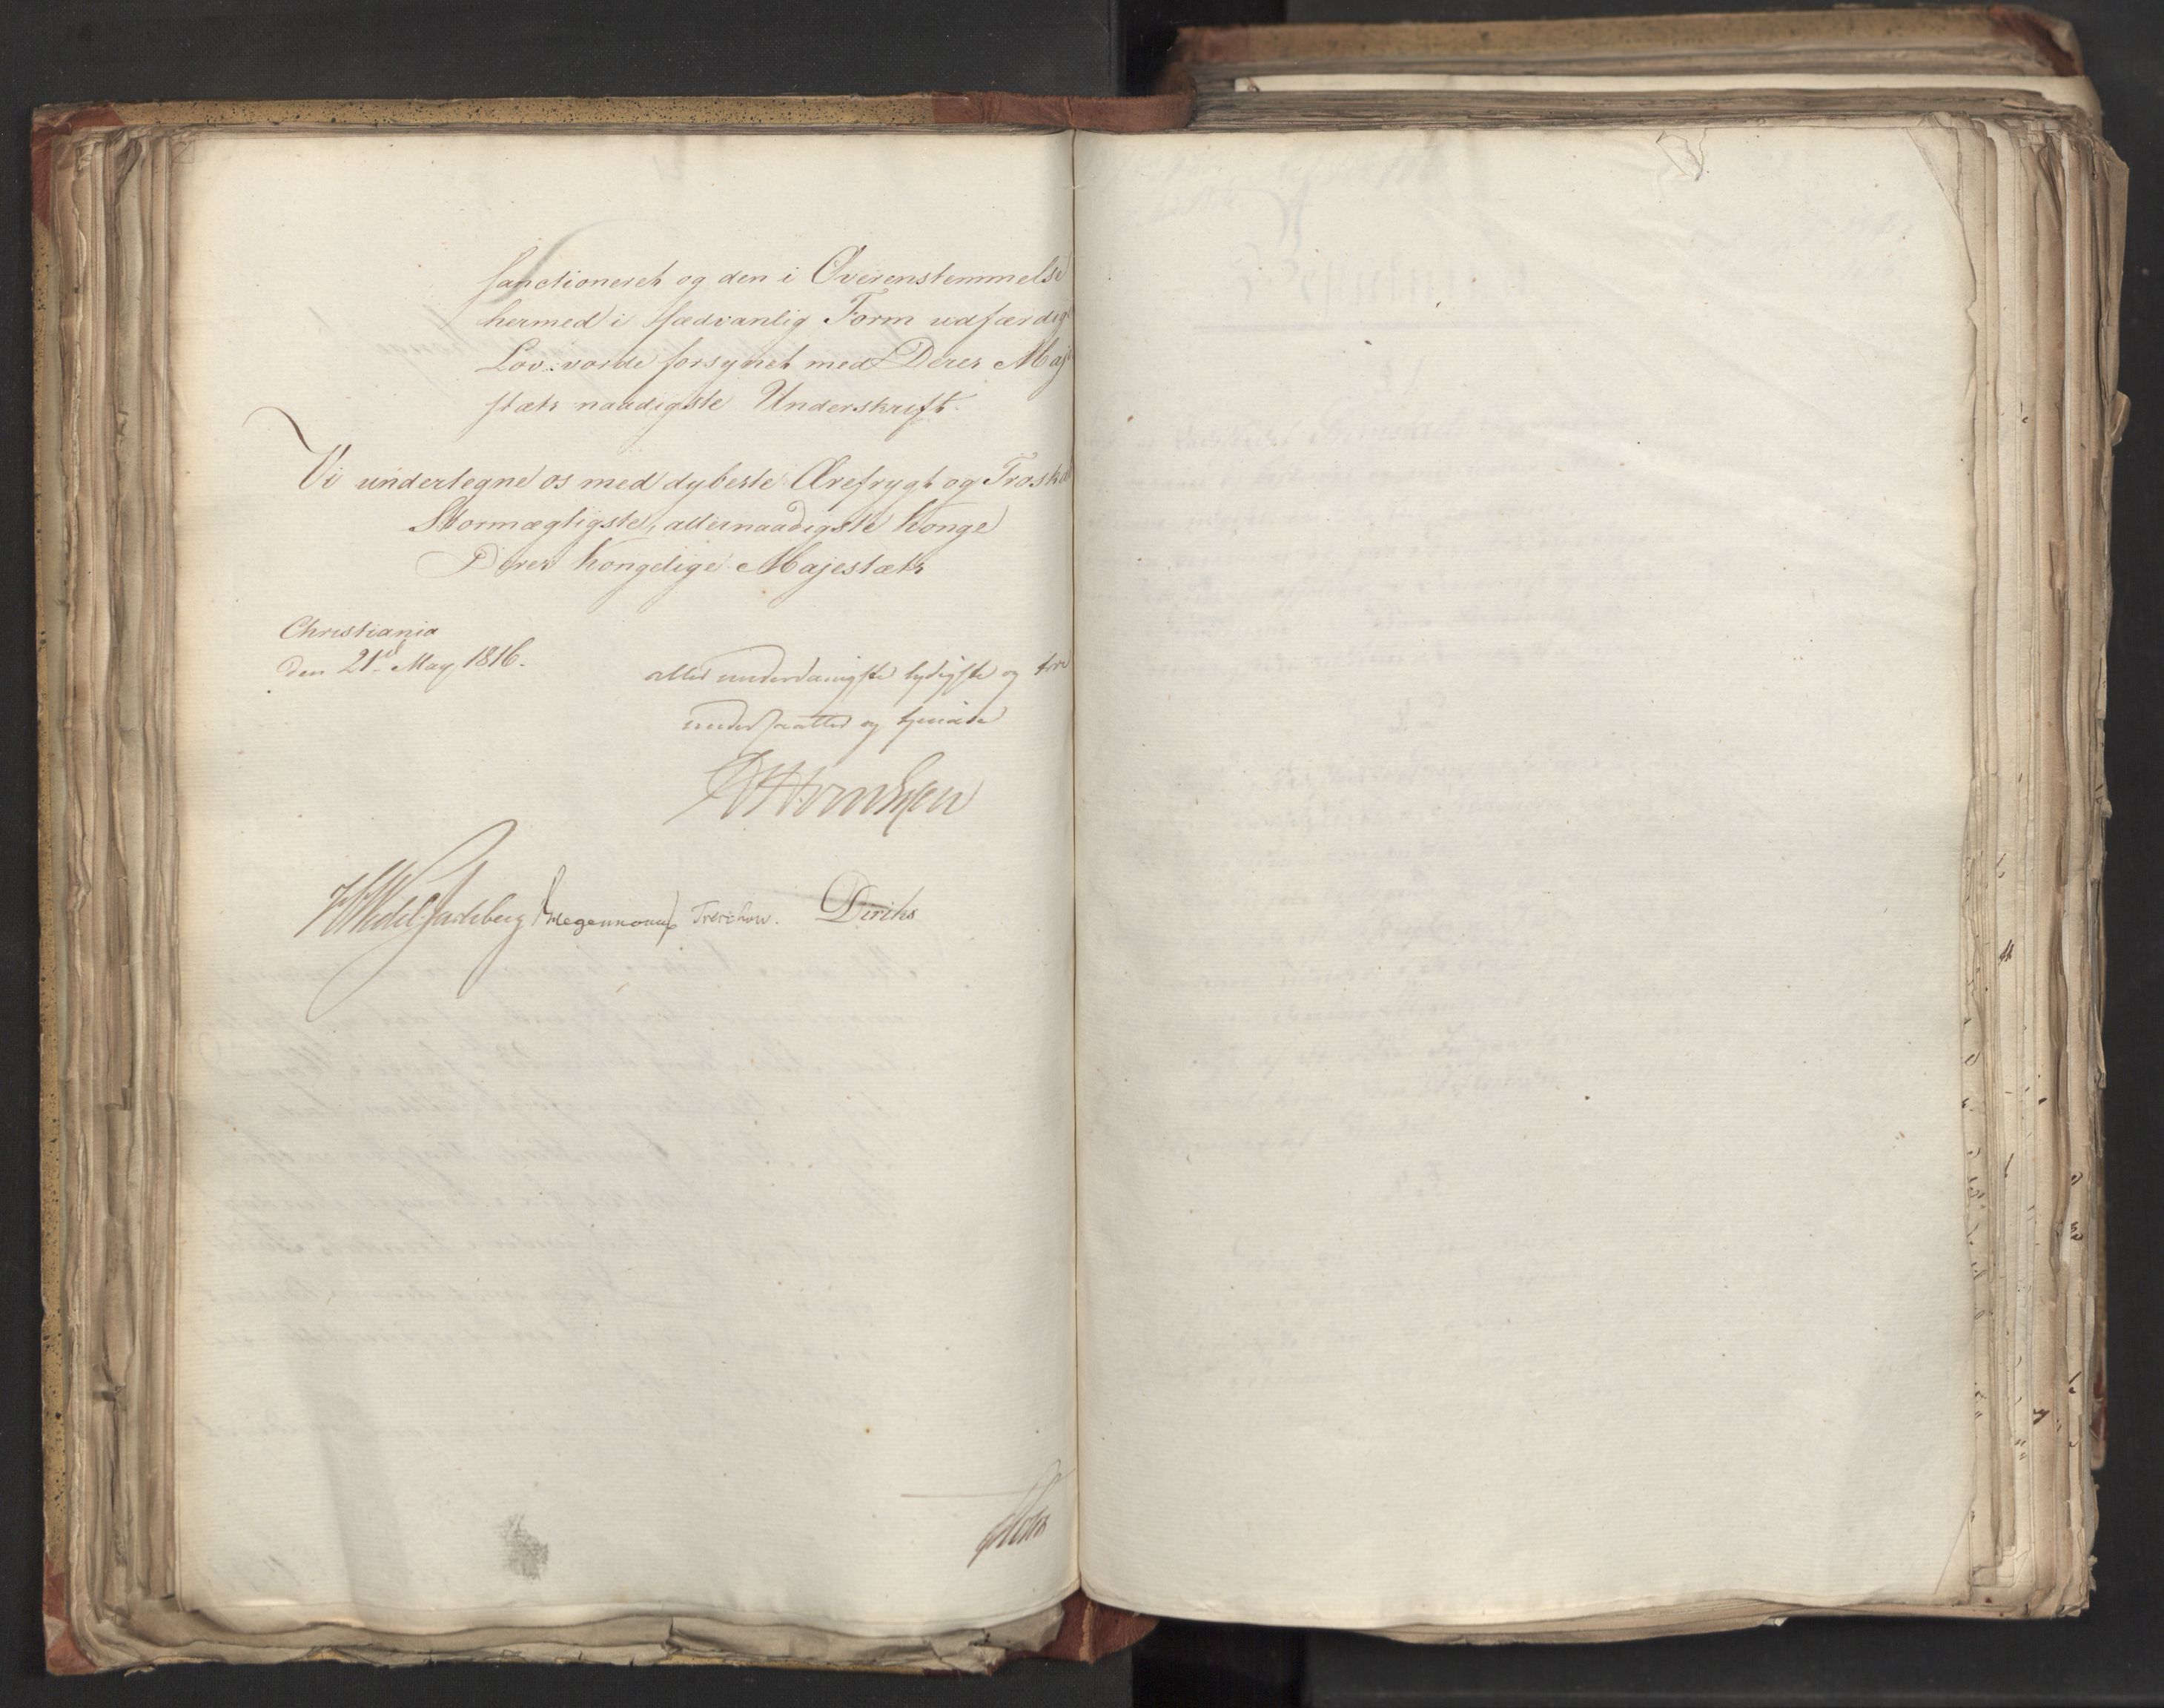 sanctioneret og den i Overensstemmelse
hermed i sædvanlig Form udfærdig
Lov vorde forsynet med Deres Maj
stæts naadigste Underskrift.
Vi undertegne os med dybeste Ærefrygt og Troskab
Stormægtigste, allernaadigste Konge
Deres Kongelige Majestæts
Christiania
den 21d May 1816.
allerunderdanigste lydigste og troe
undersaatter og tjenere
HWedel Jarlsberg Treschow. Diriks